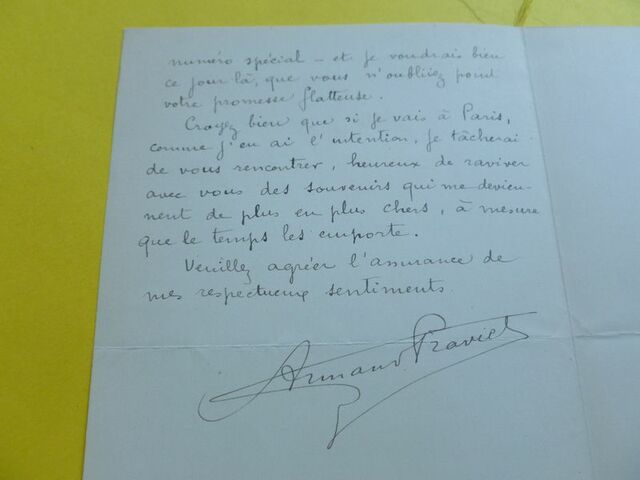 numéro spécial – et je voudrais bien
ce jour là, que vous n'oubliiez point
votre promesse flatteuse.
Croyez bien que si je vais à Paris,
comme j'en ai l'intention, je tâcherai
de vous rencontrer, heureux de raviver
avec vous des souvenirs qui me devien-
nent de plus en plus chers, à mesure
que le temps les emporte.
Veuillez agréer l'assurance de
mes respectueux sentiments.
Armand Praviel